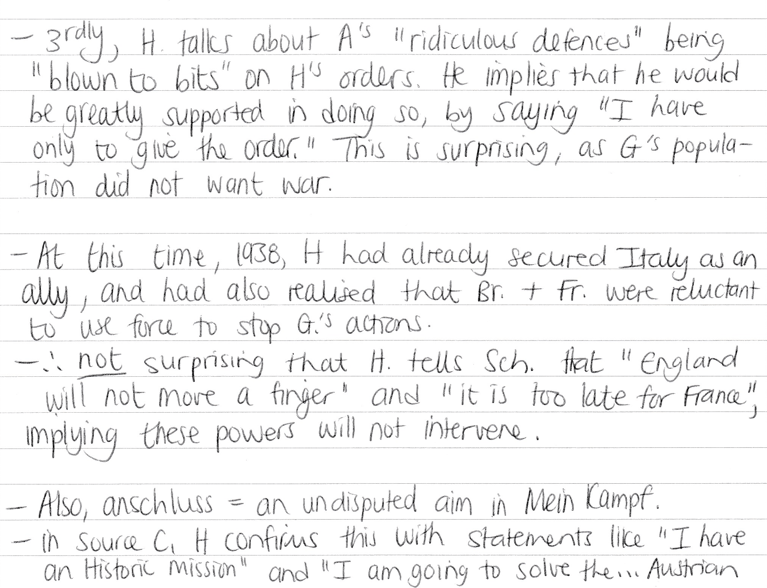 - 3rdly, H. talks about A's "ridiculous defences" being
"blown to bits" on H's orders. He implies that he would
be greatly supported in doing so, by saying "I have
only to give the order." This is surprising, as G's popula-
tion did not want war.
- At this time, 1938, H had already secured Italy as an
ally, and had also realised that Br. + Fr. were reluctant
to use force to stop G.'s actions.
- ∴ not surprising that H. tells Sch. that "England
will not move a finger" and "it is too late for France",
implying these powers will not intervene.
- Also, anschluss = an undisputed aim in Mein Kampf.
- in source C, H confirms this with statements like "I have
an Historic mission" and "I am going to solve the... Austrian